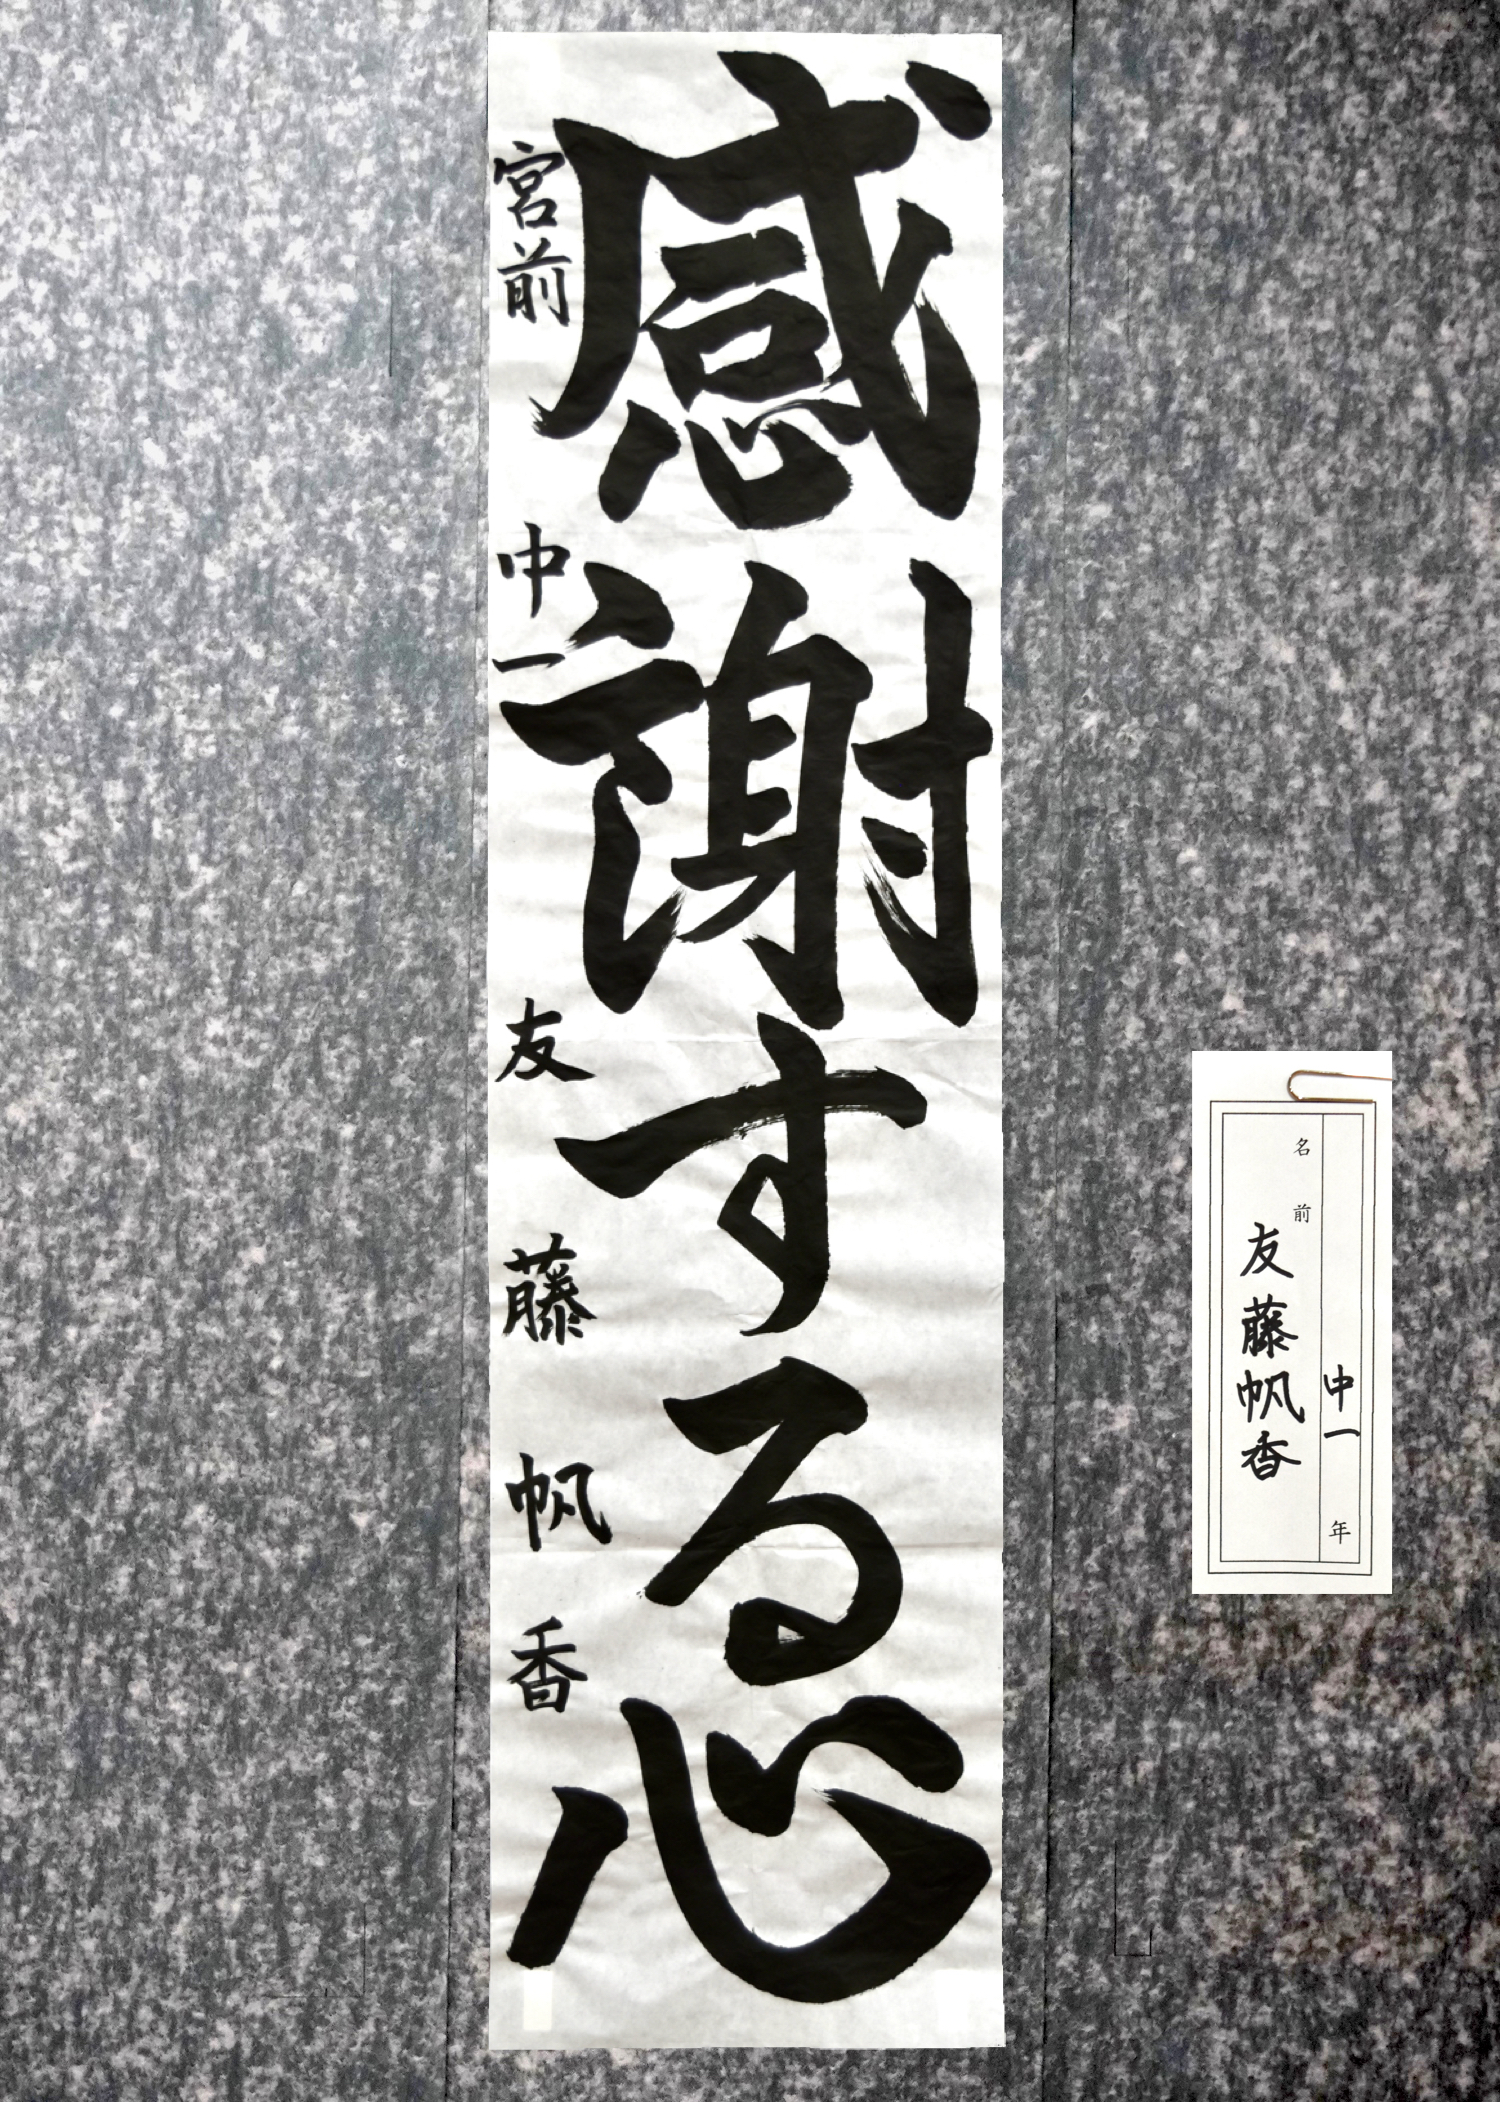 感謝する心
宮前 中一 友藤帆香
中一年
名前
友藤帆香